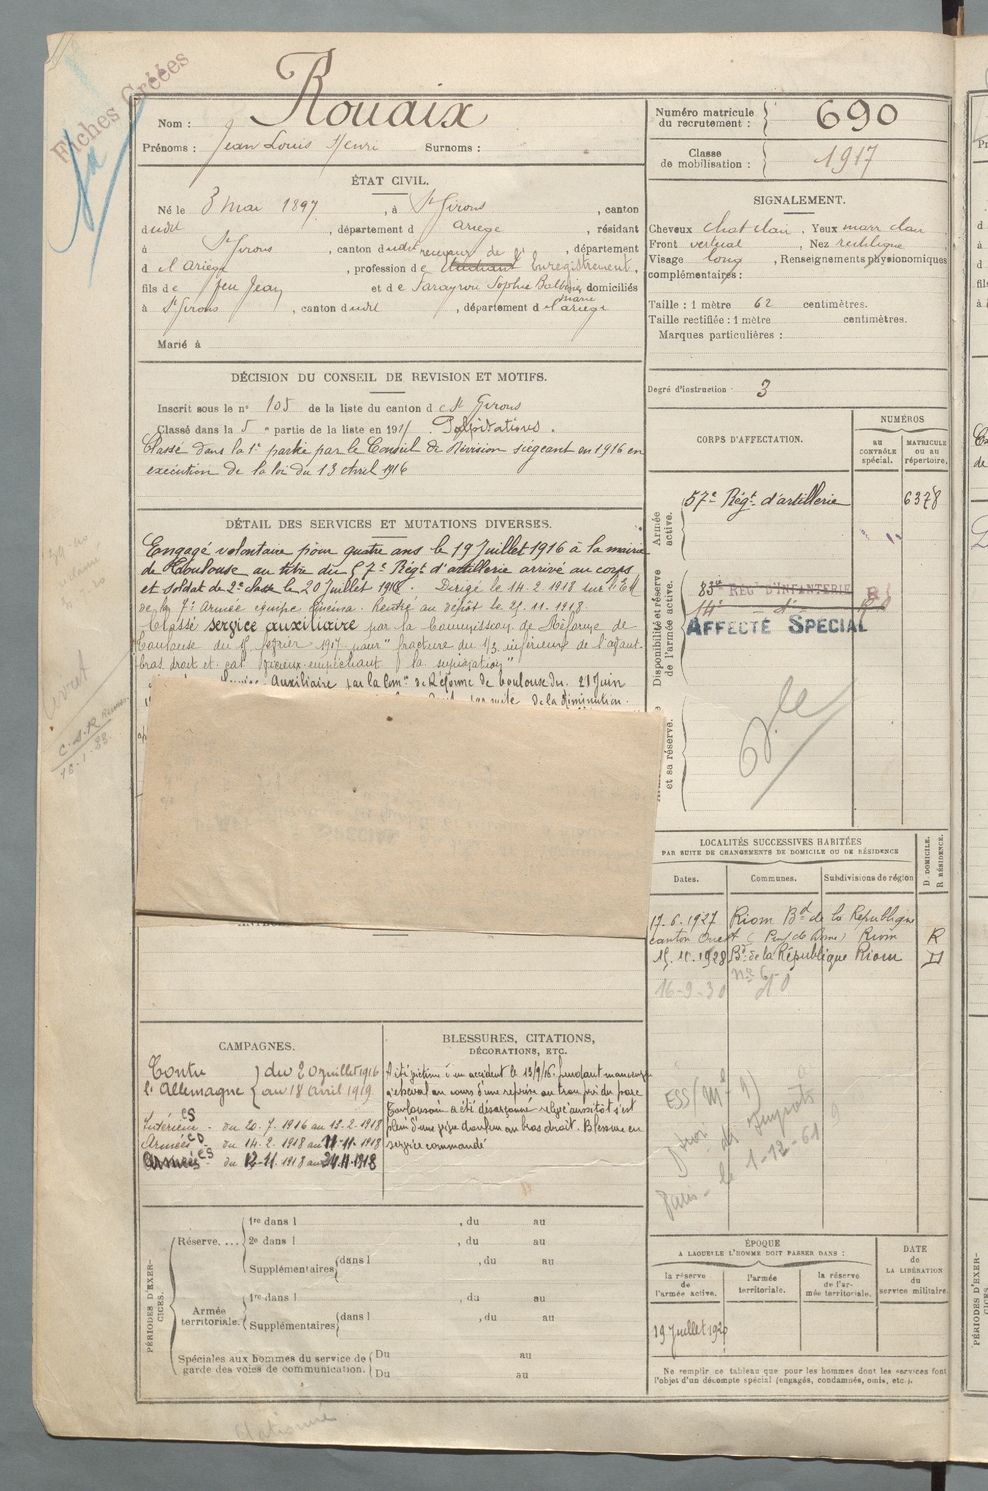 Fiches Créées
Nom : Rouaix
Prénoms : Jean Louis Henri Surnoms :
Numéro matricule du recrutement : 690
Classe de mobilisation : 1917
ÉTAT CIVIL.
Né le 3 mai 1897, à St Girons, canton
dudit, département d Ariège, résidant
à St Girons, canton dudit, département
d el Ariège, profession de receveur de l'Enregistrement,
fils de feu Jean et de Sarayrou Sophie Balbine Marie domiciliés
à St Girons, canton dudit, département d el Ariège
Marié à
SIGNALEMENT.
Cheveux chat clair, Yeux marr clair
Front vertical, Nez rectiligne
Visage long, Renseignements physionomiques
complémentaires :
Taille : 1 mètre 62 centimètres.
Taille rectifiée : 1 mètre centimètres.
Marques particulières :
Degré d'instruction : 3
DÉCISION DU CONSEIL DE REVISION ET MOTIFS.
Inscrit sous le n° 105 de la liste du canton de St Girons
Classé dans la 5e partie de la liste en 191 Palpitations.
Classé dans la 1e partie par le Conseil de Révision siégeant en 1916 en
exécution de la loi du 13 Avril 1916
CORPS D'AFFECTATION.
NUMÉROS
au contrôle spécial.
MATRICULE ou au répertoire.
Armée active.
57e Régt d'artillerie 6378
Disponibilité et réserve de l'armée active.
83e REGt D'INFANTERIE
14e d°
AFFECTÉ SPECIAL
et sa réserve.
DÉTAIL DES SERVICES ET MUTATIONS DIVERSES.
Engagé volontaire pour quatre ans le 19 Juillet 1916 à la mairie
de Toulouse au titre du 57e Régt d'artillerie arrivé au corps
et soldat de 2e classe le 20 Juillet 1916. Dirigé le 14.2.1918 sur l'E.M
de la 7e Armée équipe Cinéma. Rentré au dépôt le 25.11.1918
Classé service auxiliaire par la Commission de Réforme de
Toulouse du février 1917 pour "fracture du 1/3 inférieur de l'avant-
bras droit et cal vicieux empêchant la supination"
Auxiliaire par la Comon de Réforme de Toulouse du 21 Juin
par suite de la diminution
LOCALITÉS SUCCESSIVES HABITÉES
PAR SUITE DE CHANGEMENTS DE DOMICILE OU DE RÉSIDENCE
Dates. Communes. Subdivisions de région
D. DOMICILE. R. RÉSIDENCE.
17-6-1927 Riom Bd de la République
canton Ouest (Puy de Dôme) Riom R
15.11.1928 Bd de la République Riom D
n° 6
16-9-30 d°
Paris - le 1-12-61
CAMPAGNES.
Contre l'Allemagne du 20 juillet 1916
au 18 avril 1919
Intérieur CS - du 20.7.1916 au 13.2.1918
Armées CD - du 14.2.1918 au 11-11-1918
Armées CS du 12-11.1918 au 24.11.1918
BLESSURES, CITATIONS,
DÉCORATIONS, ETC.
A été victime d'un accident le 13/9/16. pendant manœuvre
à cheval au cours d'une reprise au trot près du parc
Toulousain a été désarçonné relevé aussitôt s'est
plein d'une vive douleur au bras droit. Blessure en
service commandé
PÉRIODES D'EXERCICES.
Réserve. ... 1re dans l , du au
2e dans l , du au
Supplémentaires dans l , du au
Armée territoriale. 1re dans l , du au
Supplémentaires dans l , du au
Spéciales aux hommes du service de garde des voies de communication. Du au
Du au
ÉPOQUE
A LAQUELLE L'HOMME DOIT PASSER DANS :
la réserve de l'armée active.
l'armée territoriale.
la réserve de l'armée territoriale.
DATE de LA LIBÉRATION du service militaire.
19 Juillet 1920
Ne remplir ce tableau que pour les hommes dont les services font
l'objet d'un décompte spécial (engagés, condamnés, omis, etc.).